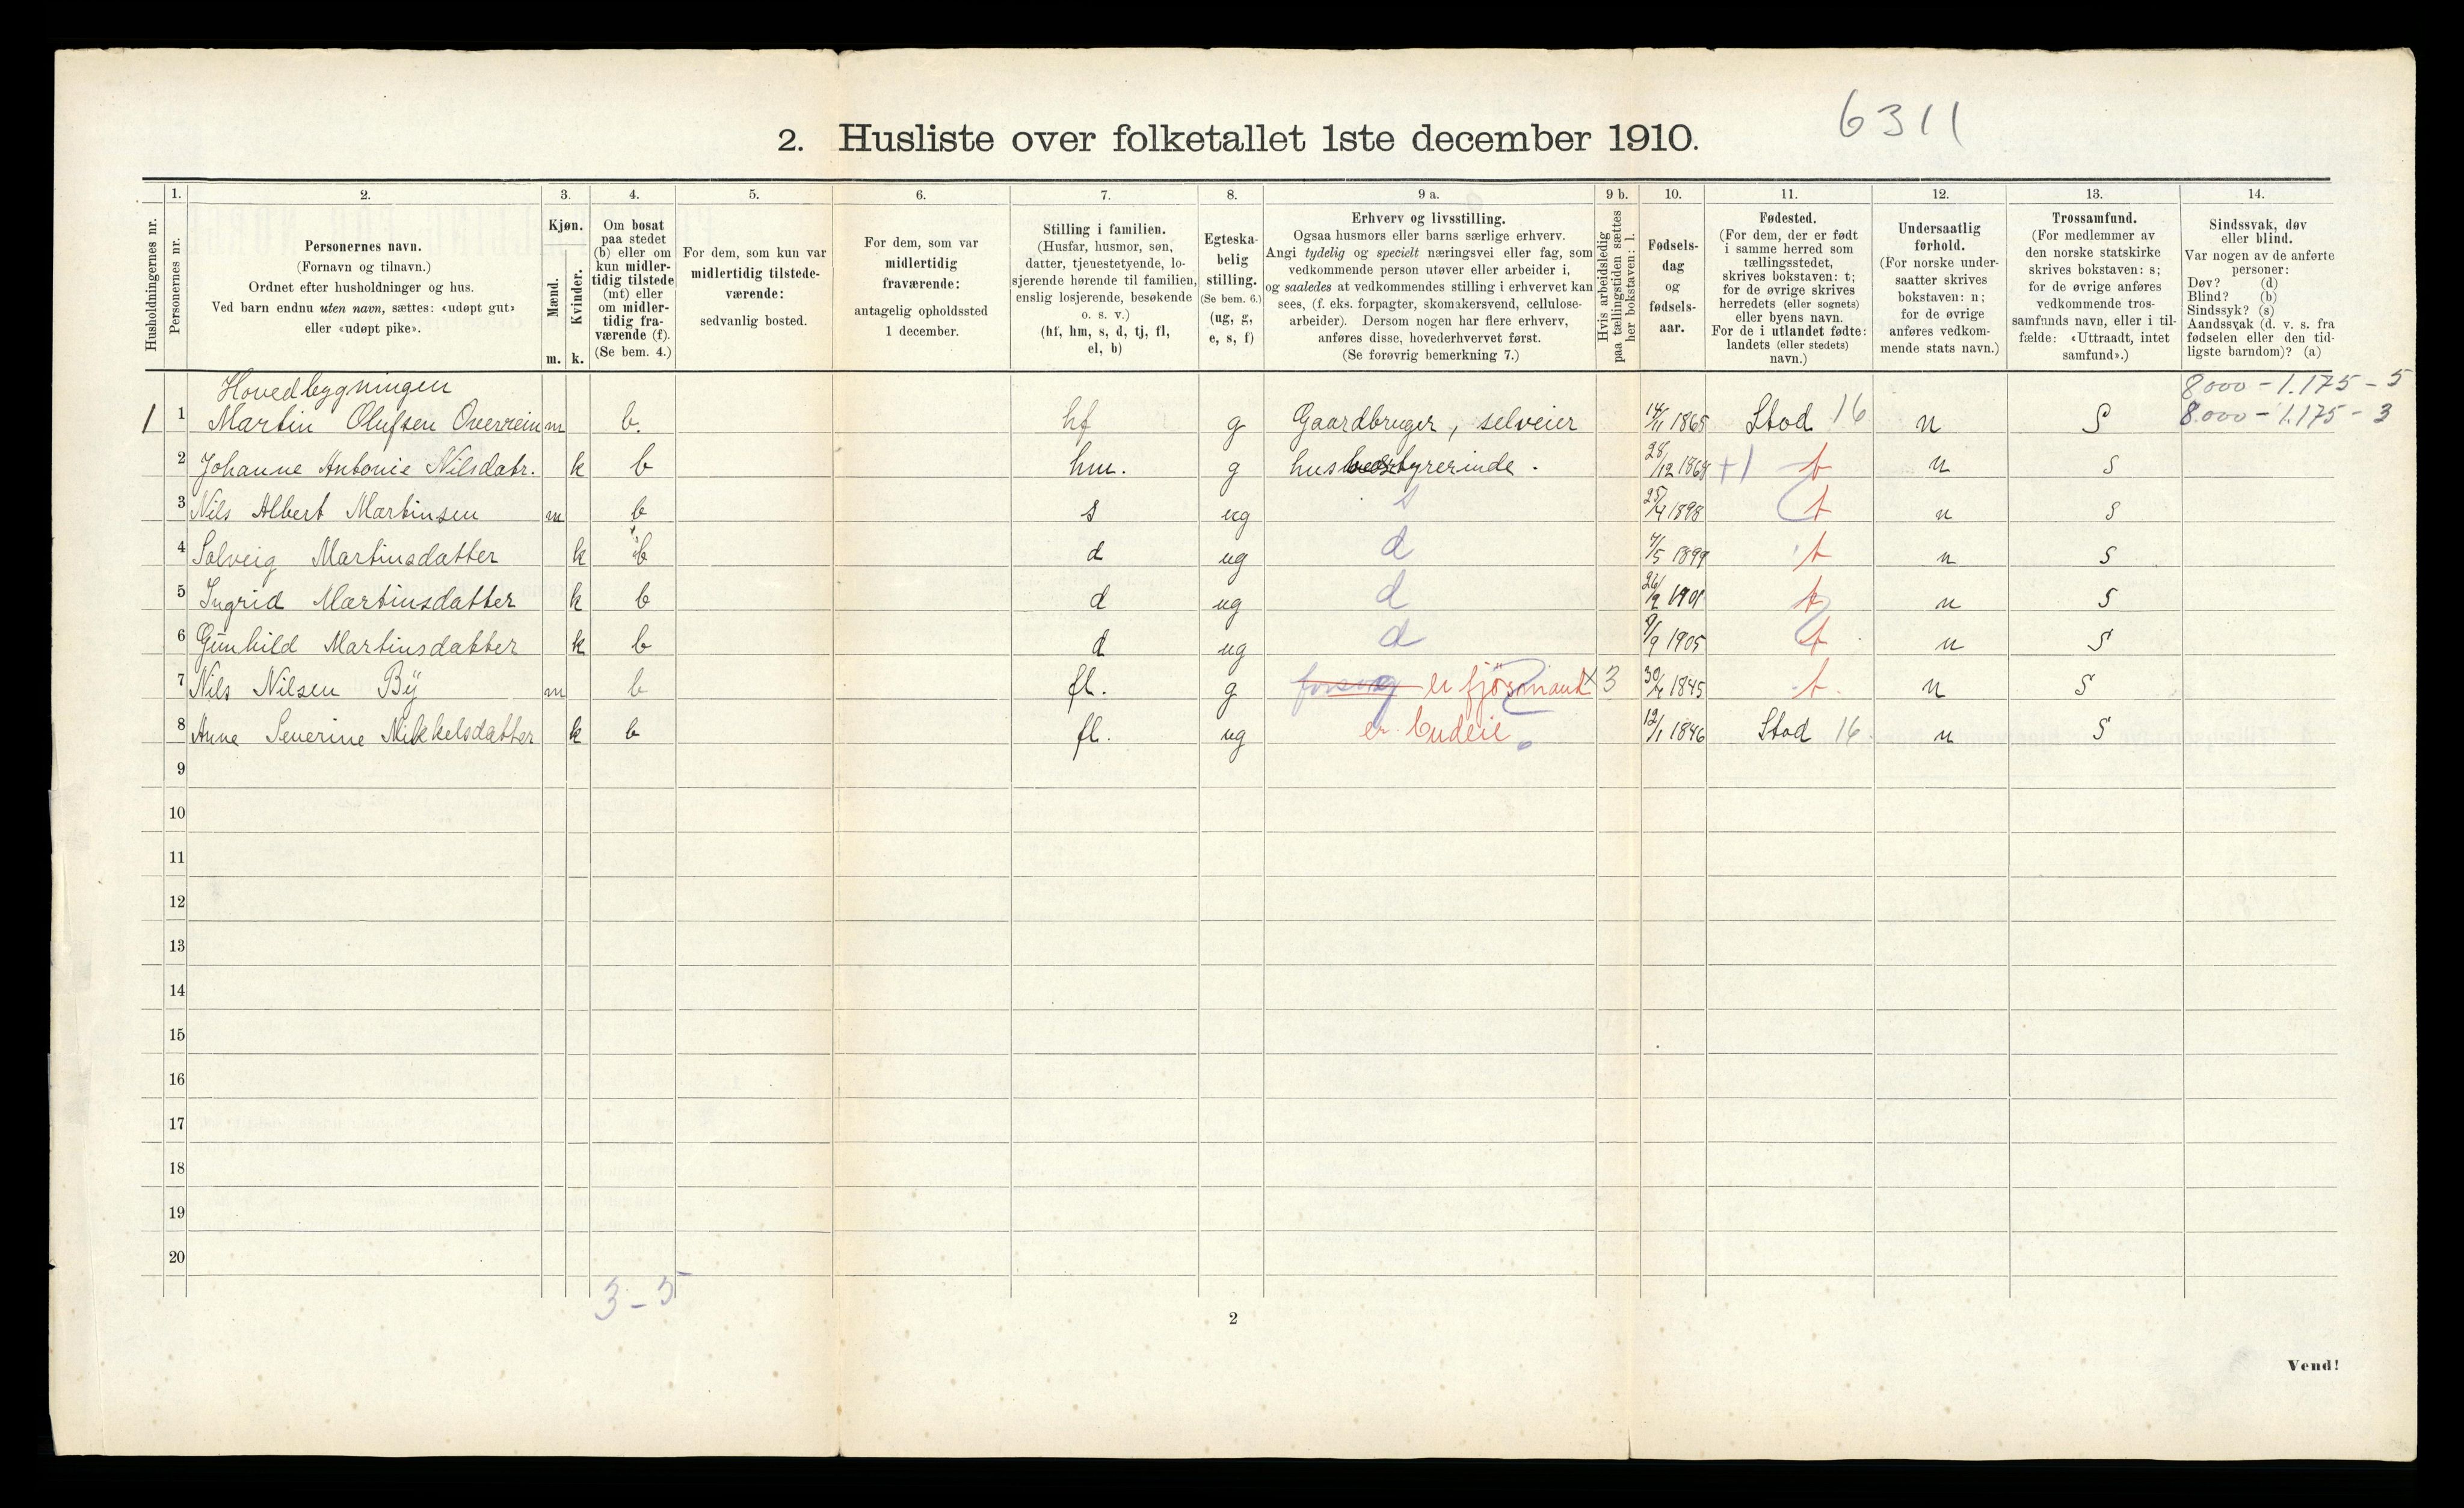 6311
2. Husliste over folketallet 1ste december 1910.
1. 2. 3. 4. 5. 6. 7. 8. 9 a. 9 b. 10. 11. 12. 13. 14.
Husholdningernes nr.
Personernes nr.
Personernes navn.
(Fornavn og tilnavn.)
Ordnet efter husholdninger og hus.
Ved barn endnu uten navn, sættes: «udøpt gut»
eller «udøpt pike».
Kjøn.
Mænd.
Kvinder.
m. k.
Om bosat
paa stedet
(b) eller om
kun midler-
tidig tilstede
(mt) eller
om midler-
tidig fra-
værende (f).
(Se bem. 4.)
For dem, som kun var
midlertidig tilstede-
værende:
sedvanlig bosted.
For dem, som var
midlertidig
fraværende:
antagelig opholdssted
1 december.
Stilling i familien.
(Husfar, husmor, søn,
datter, tjenestetyende, lo-
sjerende hørende til familien,
enslig losjerende, besøkende
o. s. v.)
(hf, hm, s, d, tj, fl,
el, b)
Egteska-
belig
stilling.
(Se bem. 6.)
(ug, g,
e, s, f)
Erhverv og livsstilling.
Ogsaa husmors eller barns særlige erhverv.
Angi tydelig og specielt næringsvei eller fag, som
vedkommende person utøver eller arbeider i,
og saaledes at vedkommendes stilling i erhvervet kan
sees, (f. eks. forpagter, skomakersvend, cellulose-
arbeider). Dersom nogen har flere erhverv,
anføres disse, hovederhvervet først.
(Se forøvrig bemerkning 7.)
Hvis arbeidsledig
paa tællingstiden sættes
her bokstaven: l.
Fødsels-
dag
og
fødsels-
aar.
Fødested.
(For dem, der er født
i samme herred som
tællingsstedet,
skrives bokstaven: t;
for de øvrige skrives
herredets (eller sognets)
eller byens navn.
For de i utlandet fødte:
landets (eller stedets)
navn.)
Undersaatlig
forhold.
(For norske under-
saatter skrives
bokstaven: n;
for de øvrige
anføres vedkom-
mende stats navn.)
Trossamfund.
(For medlemmer av
den norske statskirke
skrives bokstaven: s;
for de øvrige anføres
vedkommende tros-
samfunds navn, eller i til-
fælde: «Uttraadt, intet
samfund».)
Sindssvak, døv
eller blind.
Var nogen av de anførte
personer:
Døv? (d)
Blind? (b)
Sindssyk? (s)
Aandssvak (d. v. s. fra
fødselen eller den tid-
ligste barndom)? (a)
Hovedbygningen 8000 - 1.175 - 5
1 1 Martin Olufsen Overrein m b. hf g Gaardbruger, selveier 14/11 1865 Stod 16 n S 8.000 - 1.175 - 3
2 Johanne Antonie Nilsdatr. k b hm. g husbestyrerinde. 28/12 1868 +1 t n s
3 Nils Albert Martinsen m b s ug s 1898 t n s
4 Solveig Martinsdatter k b d ug d 1/5 1899 t n s
5 Ingrid Martinsdatter k b d ug d 1901 t n s
6 Gunhild Martinsdatter k b d ug d 9/9 1905 t n s
7 Nils Nilsen By m b fl. g er fjösmand x 3 1845 t. n S
8 Anne Severine Mikkelsdatter k b fl. ug er budeie 12/1 1846 Stod 16 n S
9
10
11
12
13
14
15
16
17
18
19
20
3 - 5
2
Vend!